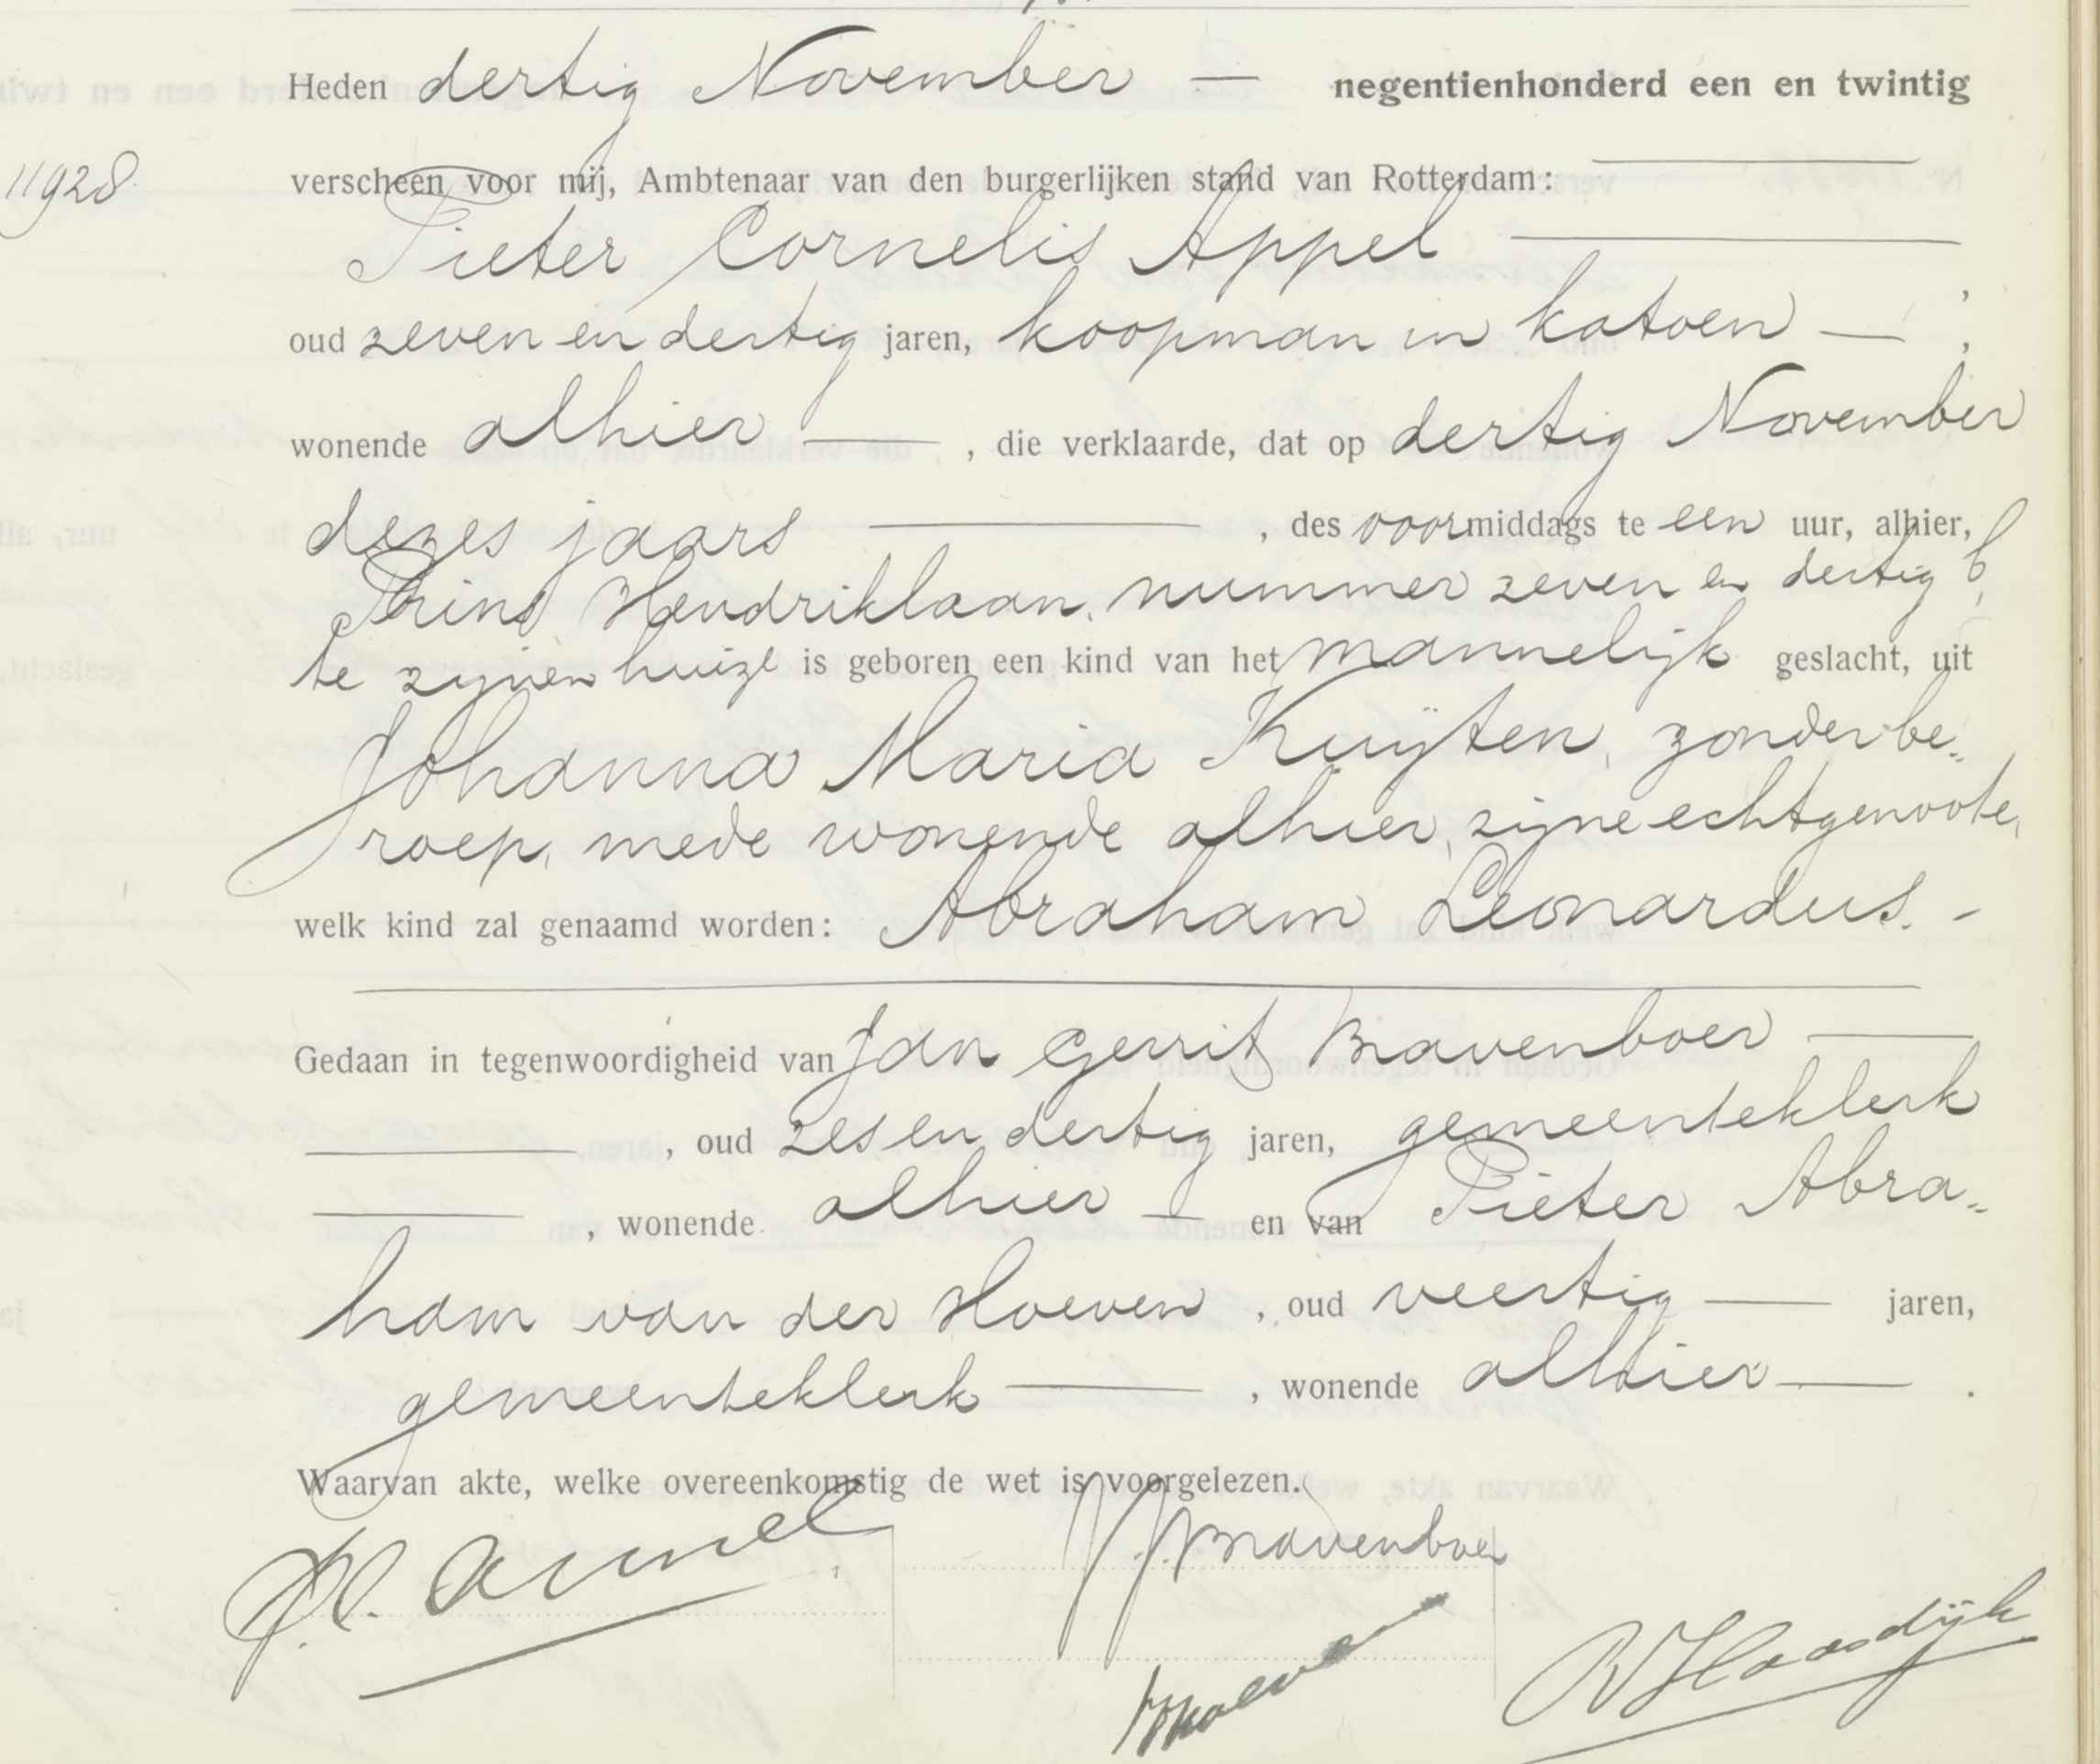 Heden dertig November — negentienhonderd een en twintig
11928 verscheen voor mij, Ambtenaar van den burgerlijken stand van Rotterdam:
Pieter Cornelis Appel
oud zeven en dertig jaren, koopman in katoen — ,
wonende alhier — , die verklaarde, dat op dertig November
dezes jaars — , des voormiddags te een uur, alhier,
Prins Hendriklaan, nummer zeven en dertig b,
te zijnen huize is geboren een kind van het mannelijk geslacht, uit
Johanna Maria Kuijten, zonder be„
roep, mede wonende alhier, zijne echtgenoote,
welk kind zal genaamd worden: Abraham Leonardus. -
Gedaan in tegenwoordigheid van Jan Gerrit Bravenboer —
— , oud zes en dertig jaren, gemeenteklerk
— , wonende alhier — en van Pieter Abra„
ham van der Hoeven , oud veertig — jaren,
gemeenteklerk — , wonende alhier — .
Waarvan akte, welke overeenkomstig de wet is voorgelezen.
P.C. Appel Bravenboer
Hoeven Haasdijk